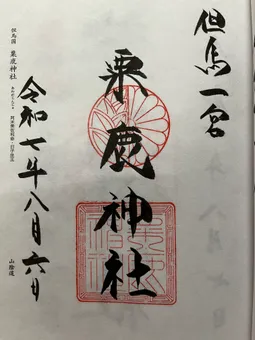 但馬一宮
粟鹿神社
令和七年八月六日
但馬国 粟鹿神社
山陰道